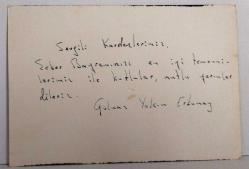 Sevgili Kardeşlerimiz,
Şeker Bayramınızı en iyi temenni-
lerimiz ile kutlular, mutlu yarınlar
dileriz.
Yalçın